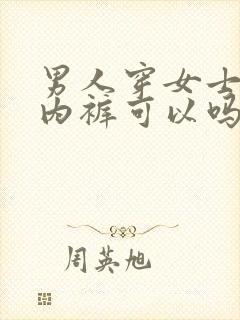 男人穿女士
内裤可以吗
周英旭